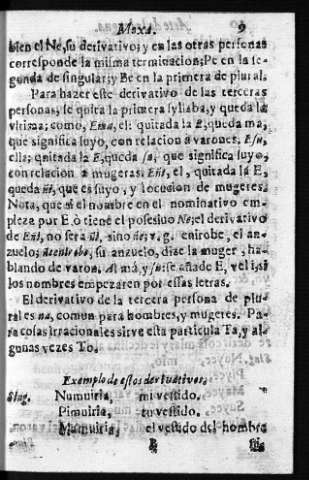 Moxa. 9
bien el Ne, su derivativo; y en las otras personas
corresponde la misma terminacion; Pe en la se-
gunda de singular; y Be en la primera de plural.
Para hazer este derivativo de las terceras
personas, se quita la primera syllaba, y queda la
vltima; como, Ema, el: quitada la E, queda ma,
que significa suyo, con relacion à varones. Esu,
ella; quitada la E, queda su; que significa suyo,
con relacion à mugeres. Eñi, el, quitada la E,
queda ñi, que es suyo, y locucion de mugeres.
Nota, que si el nombre en el nominativo em-
pieza por E, ò tiene el posesiuo Ne; el derivativo
de Eñi, no serà ñi, sino ñe; v.g. enirobe, el an-
zuelo; su anzuelo, dize la muger, ha-
blando de varon. Al má, y su: se añade E, vel i, si
los nombres empezaren por essas letras.
El derivativo de la tercera persona de plu-
ral es na, comun para hombres, y mugeres. Pa-
ra cosas irracionales sirve esta particula Ta, y al-
gunas vezes To.
Exemplo de estos derivativos.
Sing. Numuiria, mi vestido.
Pimuiria, tu vestido.
Mamuiria, el vestido del hombre
B